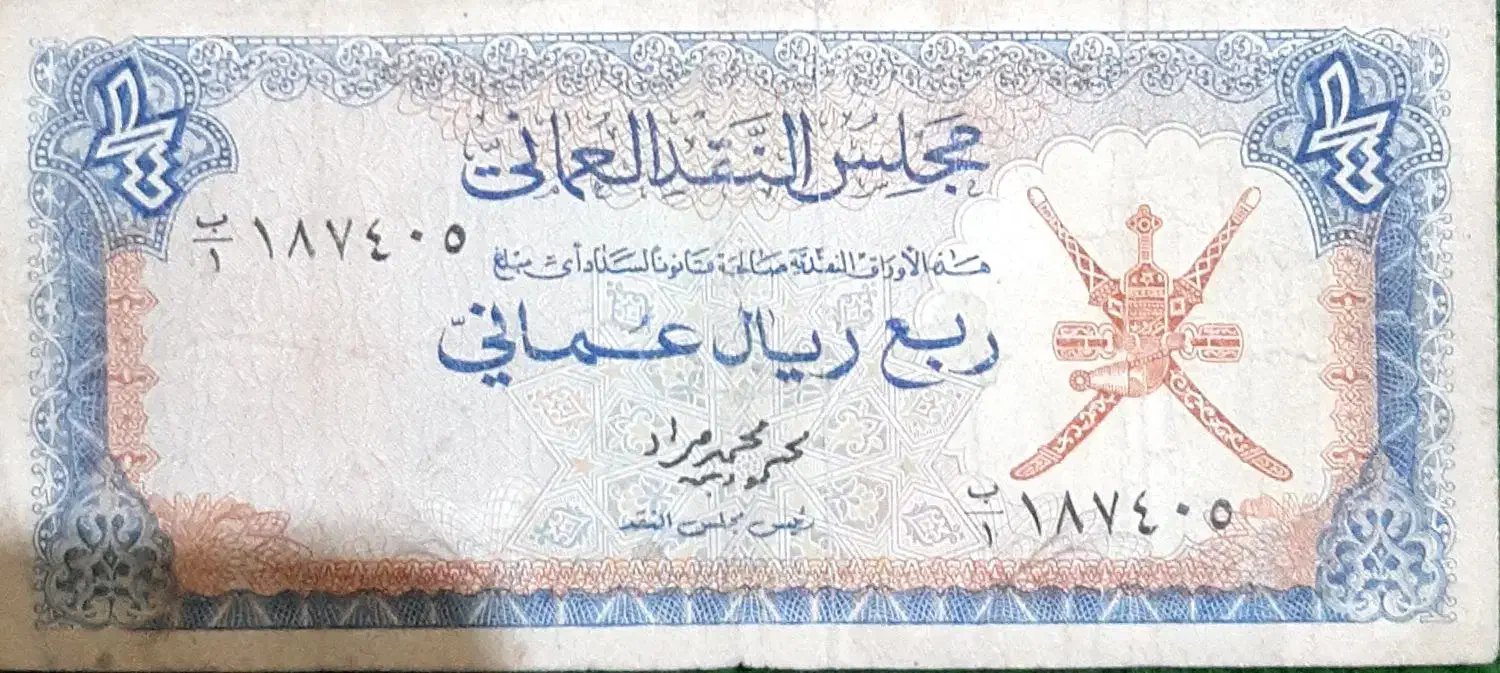 ١/٤
١/٤
مجلس النقد العماني
ب/١ ١٨٧٤٠٥
هذه الأوراق النقدية صالحة قانوناً لسداد أي مبلغ
ربع ريال عُماني
رئيس مجلس النقد
ب/١ ١٨٧٤٠٥